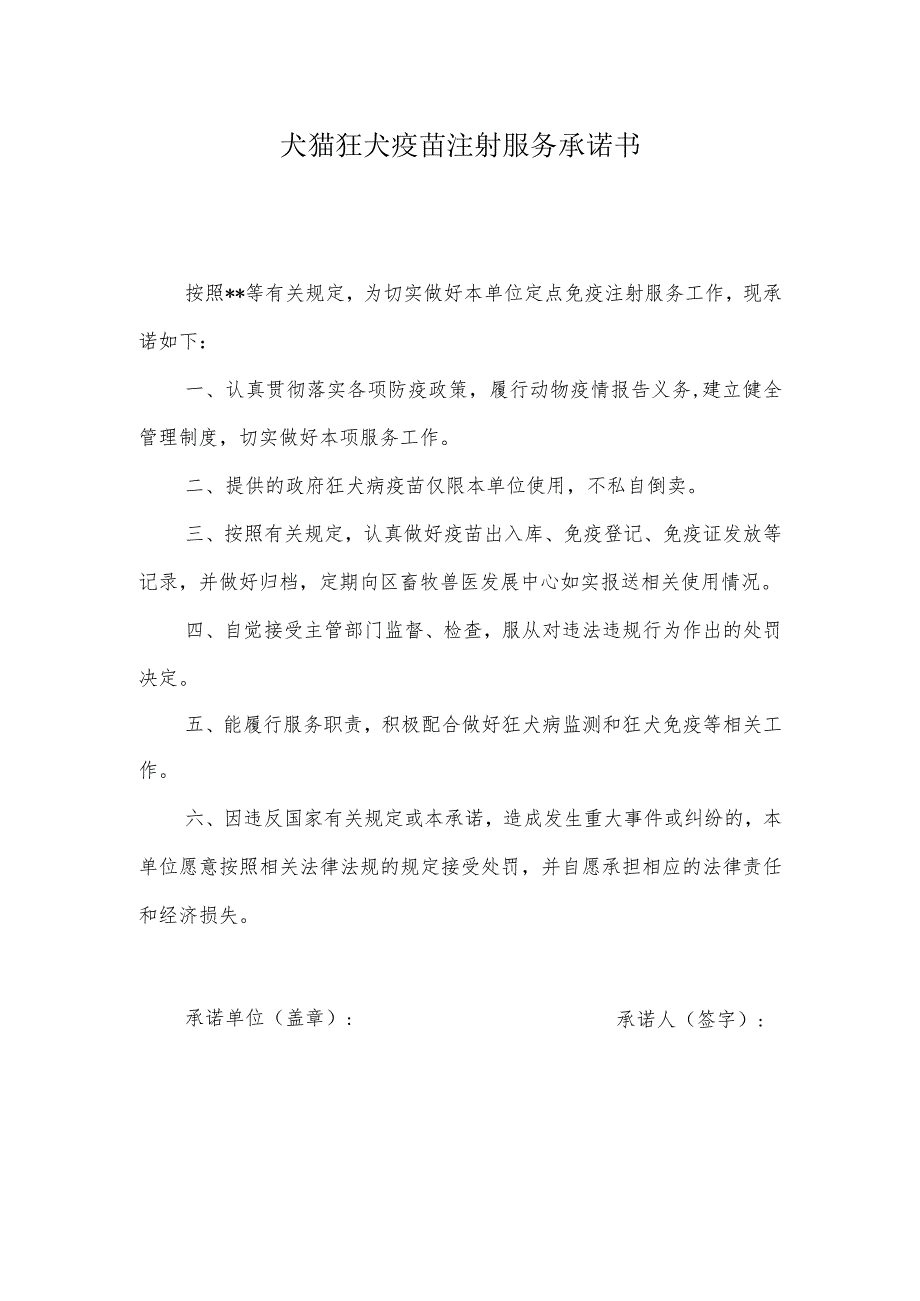 犬猫狂犬疫苗注射服务承诺书
按照**等有关规定，为切实做好本单位定点免疫注射服务工作，现承
诺如下：
一、认真贯彻落实各项防疫政策，履行动物疫情报告义务,建立健全
管理制度，切实做好本项服务工作。
二、提供的政府狂犬病疫苗仅限本单位使用，不私自倒卖。
三、按照有关规定，认真做好疫苗出入库、免疫登记、免疫证发放等
记录，并做好归档，定期向区畜牧兽医发展中心如实报送相关使用情况。
四、自觉接受主管部门监督、检查，服从对违法违规行为作出的处罚
决定。
五、能履行服务职责，积极配合做好狂犬病监测和狂犬免疫等相关工
作。
六、因违反国家有关规定或本承诺，造成发生重大事件或纠纷的，本
单位愿意按照相关法律法规的规定接受处罚，并自愿承担相应的法律责任
和经济损失。
承诺单位（盖章）: 承诺人（签字）: